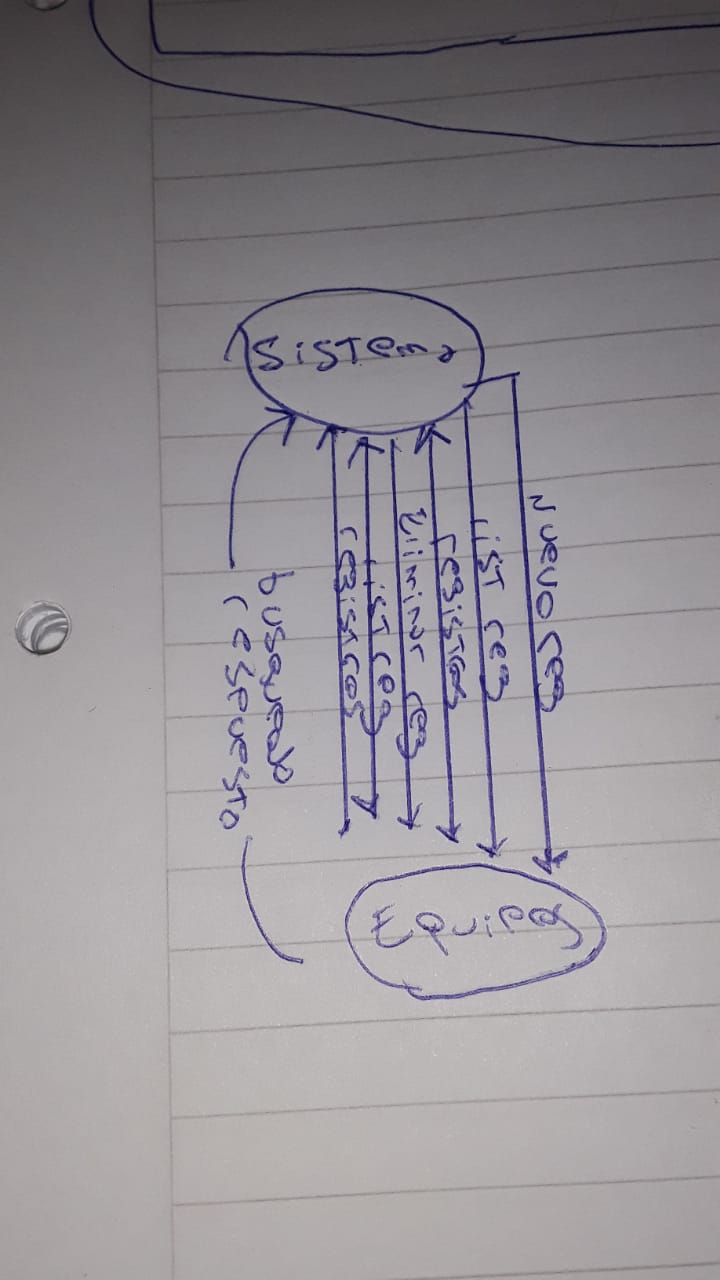 Sistema
Nuevo reg
List reg
registros
Eliminar reg
List reg
registros
busqueda
respuesta
Equipos